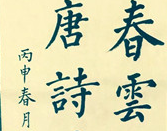 春雲
唐詩
丙申春月